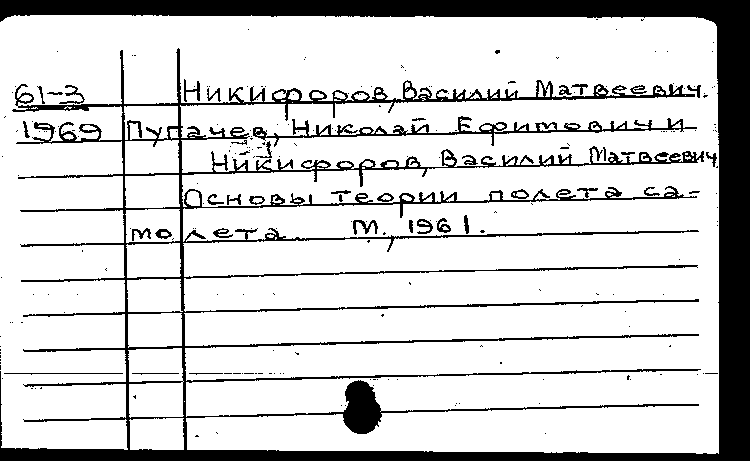 61-3 Никифоров, Василий Матвеевич.
1969 Пугачев, Николай Ефимович и
Никифоров, Василий Матвеевич
Основы теории полета са-
молета М., 1961.